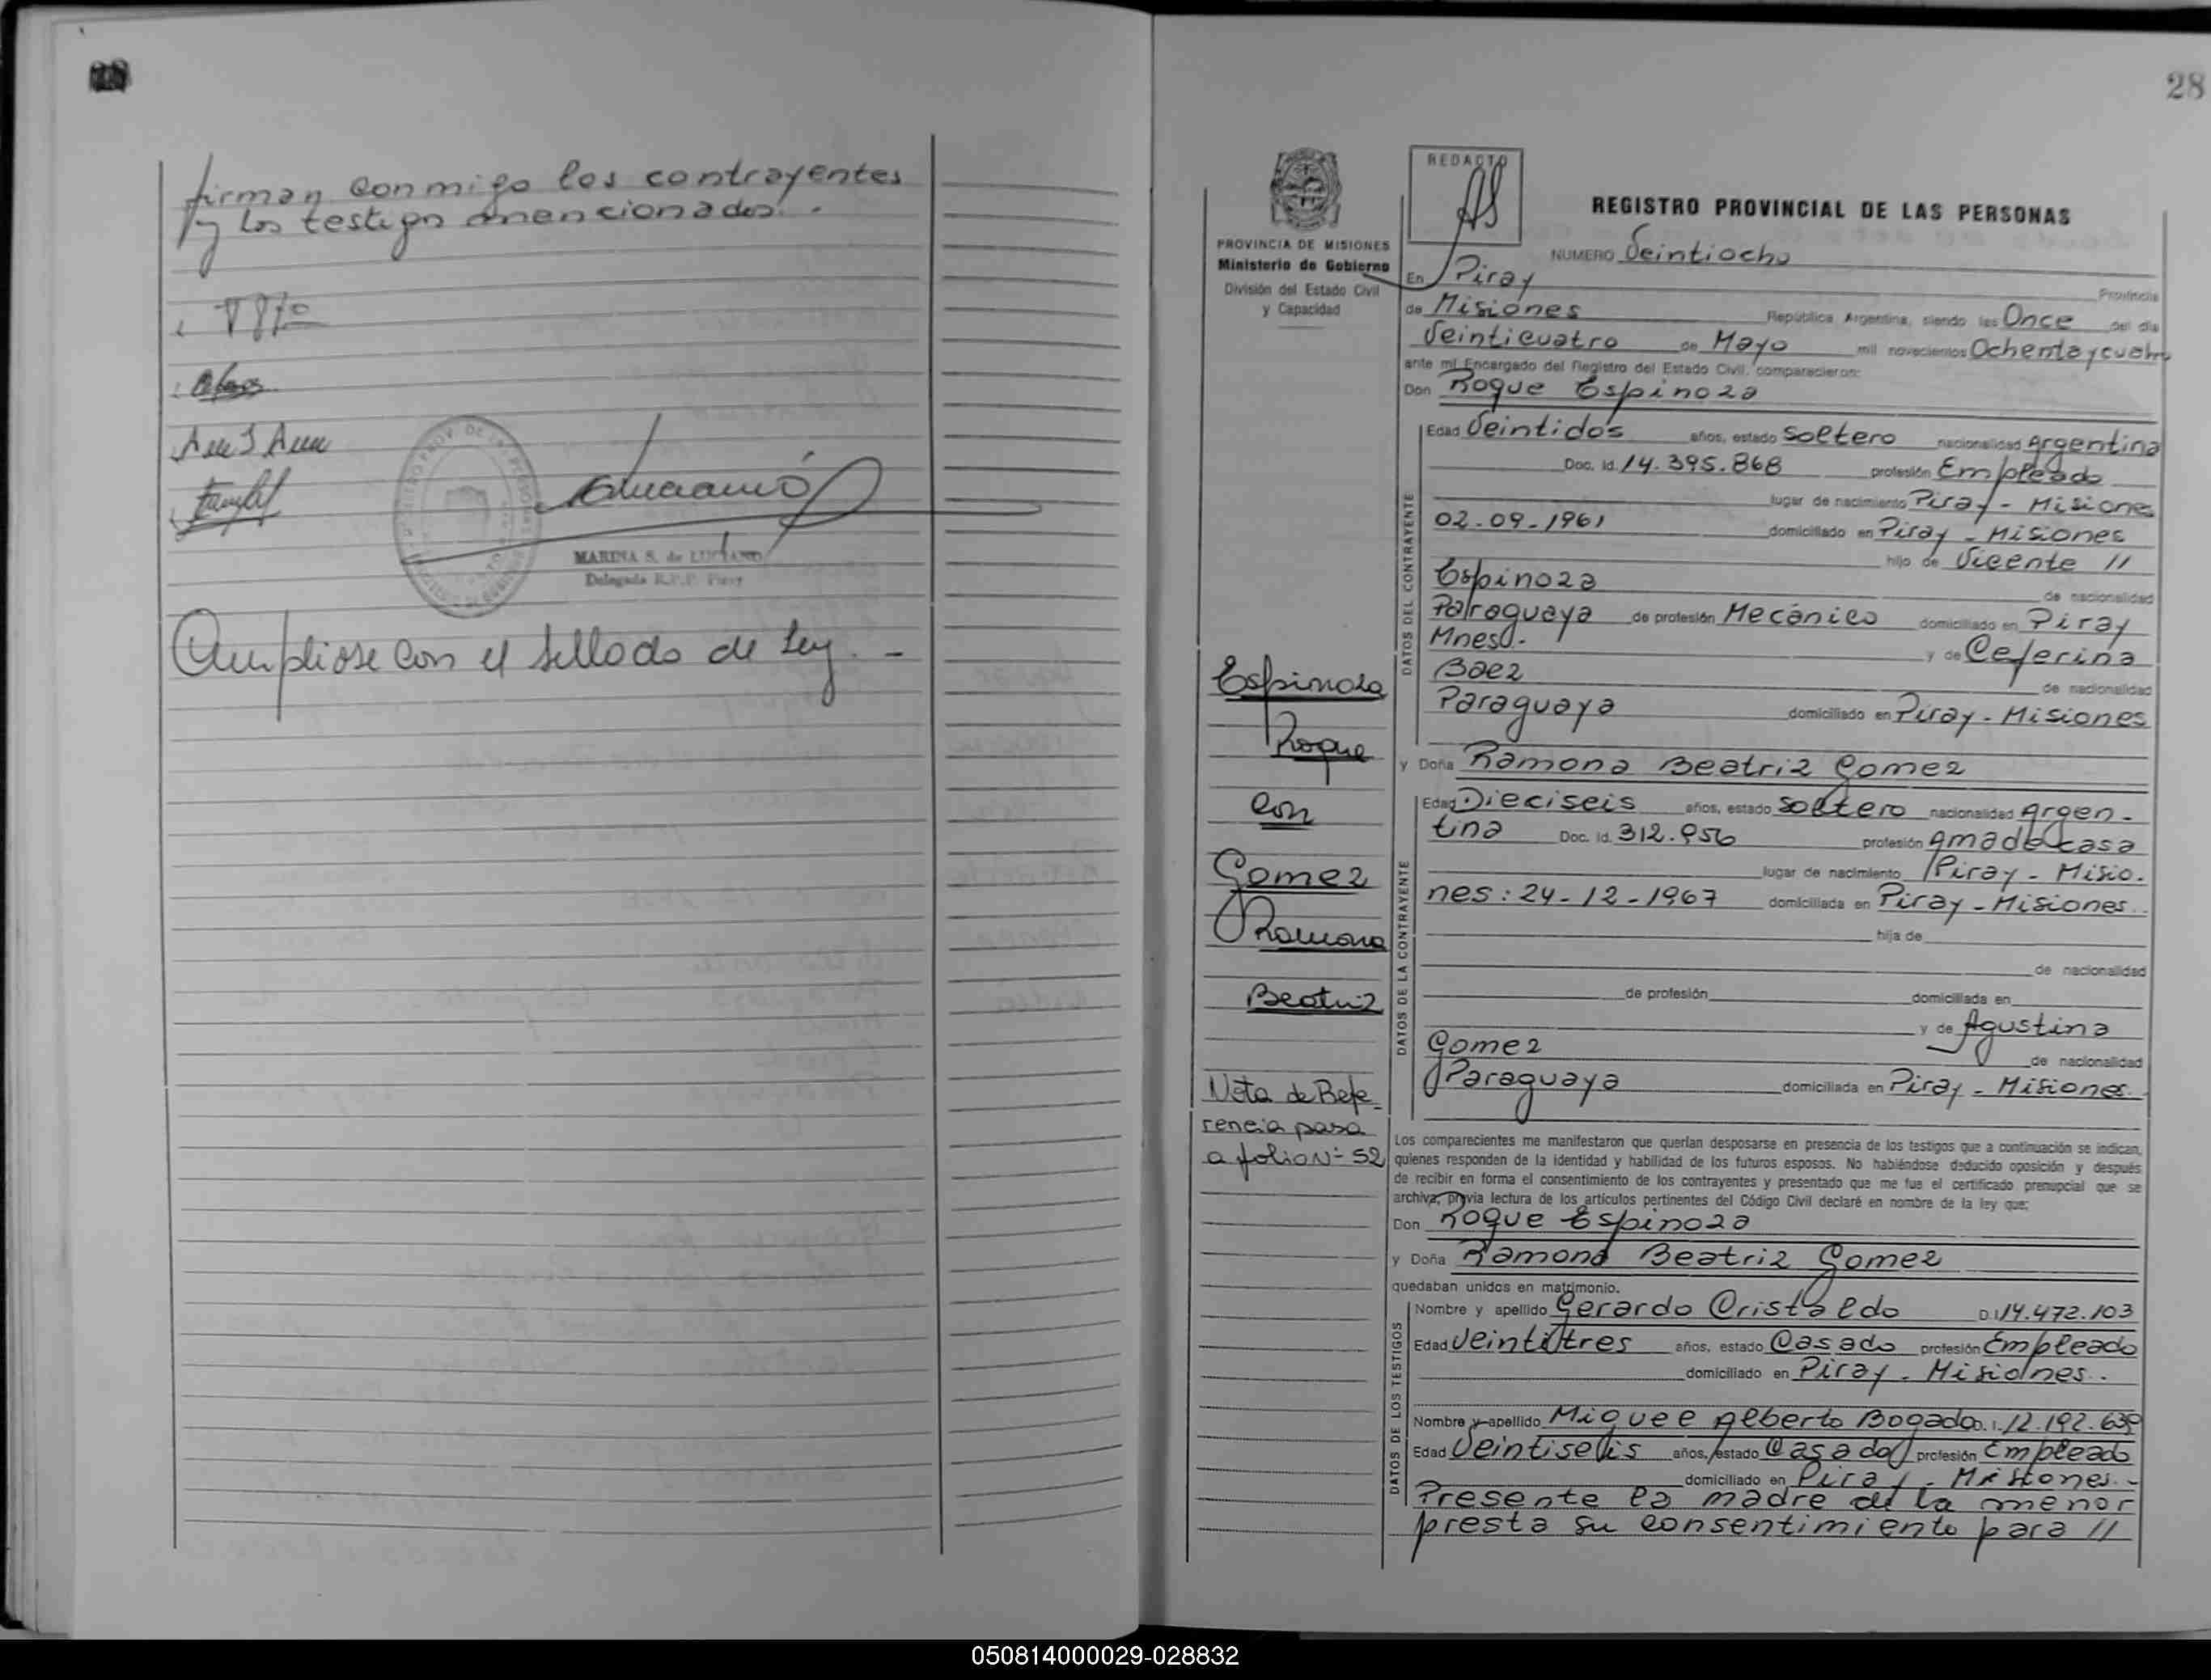 firman conmigo los contrayentes
y los testigos mencionados. -
MARINA S. de LUCIANO
Delegada R.P.P. Piray
Cumpliose con el sellado de Ley. -
28
REDACTO
PROVINCIA DE MISIONES
Ministerio de Gobierno
División del Estado Civil
y Capacidad
REGISTRO PROVINCIAL DE LAS PERSONAS
NUMERO Veintiocho
En Piray Provincia
de Misiones República Argentina, siendo las Once del día
Veinticuatro de Mayo mil novecientos Ochenta y cuatro
ante mí Encargado del Registro del Estado Civil, comparecieron:
Don Roque Espinoza
DATOS DEL CONTRAYENTE
Edad Veintidos años, estado Soltero nacionalidad Argentina
Doc. Id. 14.395.868 profesión Empleado
lugar de nacimiento Piray - Misiones
02-09-1961 domiciliado en Piray - Misiones
hijo de Vicente //
Espinoza de nacionalidad
Paraguaya de profesión Mecánico domiciliado en Piray
Mnes. - y de Ceferina
Baez de nacionalidad
Paraguaya domiciliado en Piray - Misiones
y Doña Ramona Beatriz Gomez
DATOS DE LA CONTRAYENTE
Edad Dieciseis años, estado Soltero nacionalidad Argen-
tina Doc. Id. 312.956 profesión Ama de casa
lugar de nacimiento Piray - Misio-
nes: 24-12-1967 domiciliada en Piray - Misiones
hija de
de nacionalidad
de profesión domiciliada en
y de Agustina
Gomez de nacionalidad
Paraguaya domiciliada en Piray - Misiones.
Espinoza
Roque
con
Gomez
Ramona
Beatriz
Nota de Refe-
rencia pasa
a folio Nº 52
Los comparecientes me manifestaron que querían desposarse en presencia de los testigos que a continuación se indican,
quienes responden de la identidad y habilidad de los futuros esposos. No habiéndose deducido oposición y después
de recibir en forma el consentimiento de los contrayentes y presentado que me fue el certificado prenupcial que se
archiva, previa lectura de los artículos pertinentes del Código Civil declaré en nombre de la ley que:
Don Roque Espinoza
y Doña Ramona Beatriz Gomez
quedaban unidos en matrimonio.
DATOS DE LOS TESTIGOS
Nombre y apellido Gerardo Cristaldo D.I. 14.472.103
Edad Veintitres años, estado Casado profesión Empleado
domiciliado en Piray - Misiones.
Nombre y apellido Miguel Alberto Bogado D.I. 12.192.639
Edad Veintiseis años, estado Casado profesión Empleado
domiciliado en Piray - Misiones. -
Presente la madre de la menor
presta su consentimiento para //
050814000029-028832